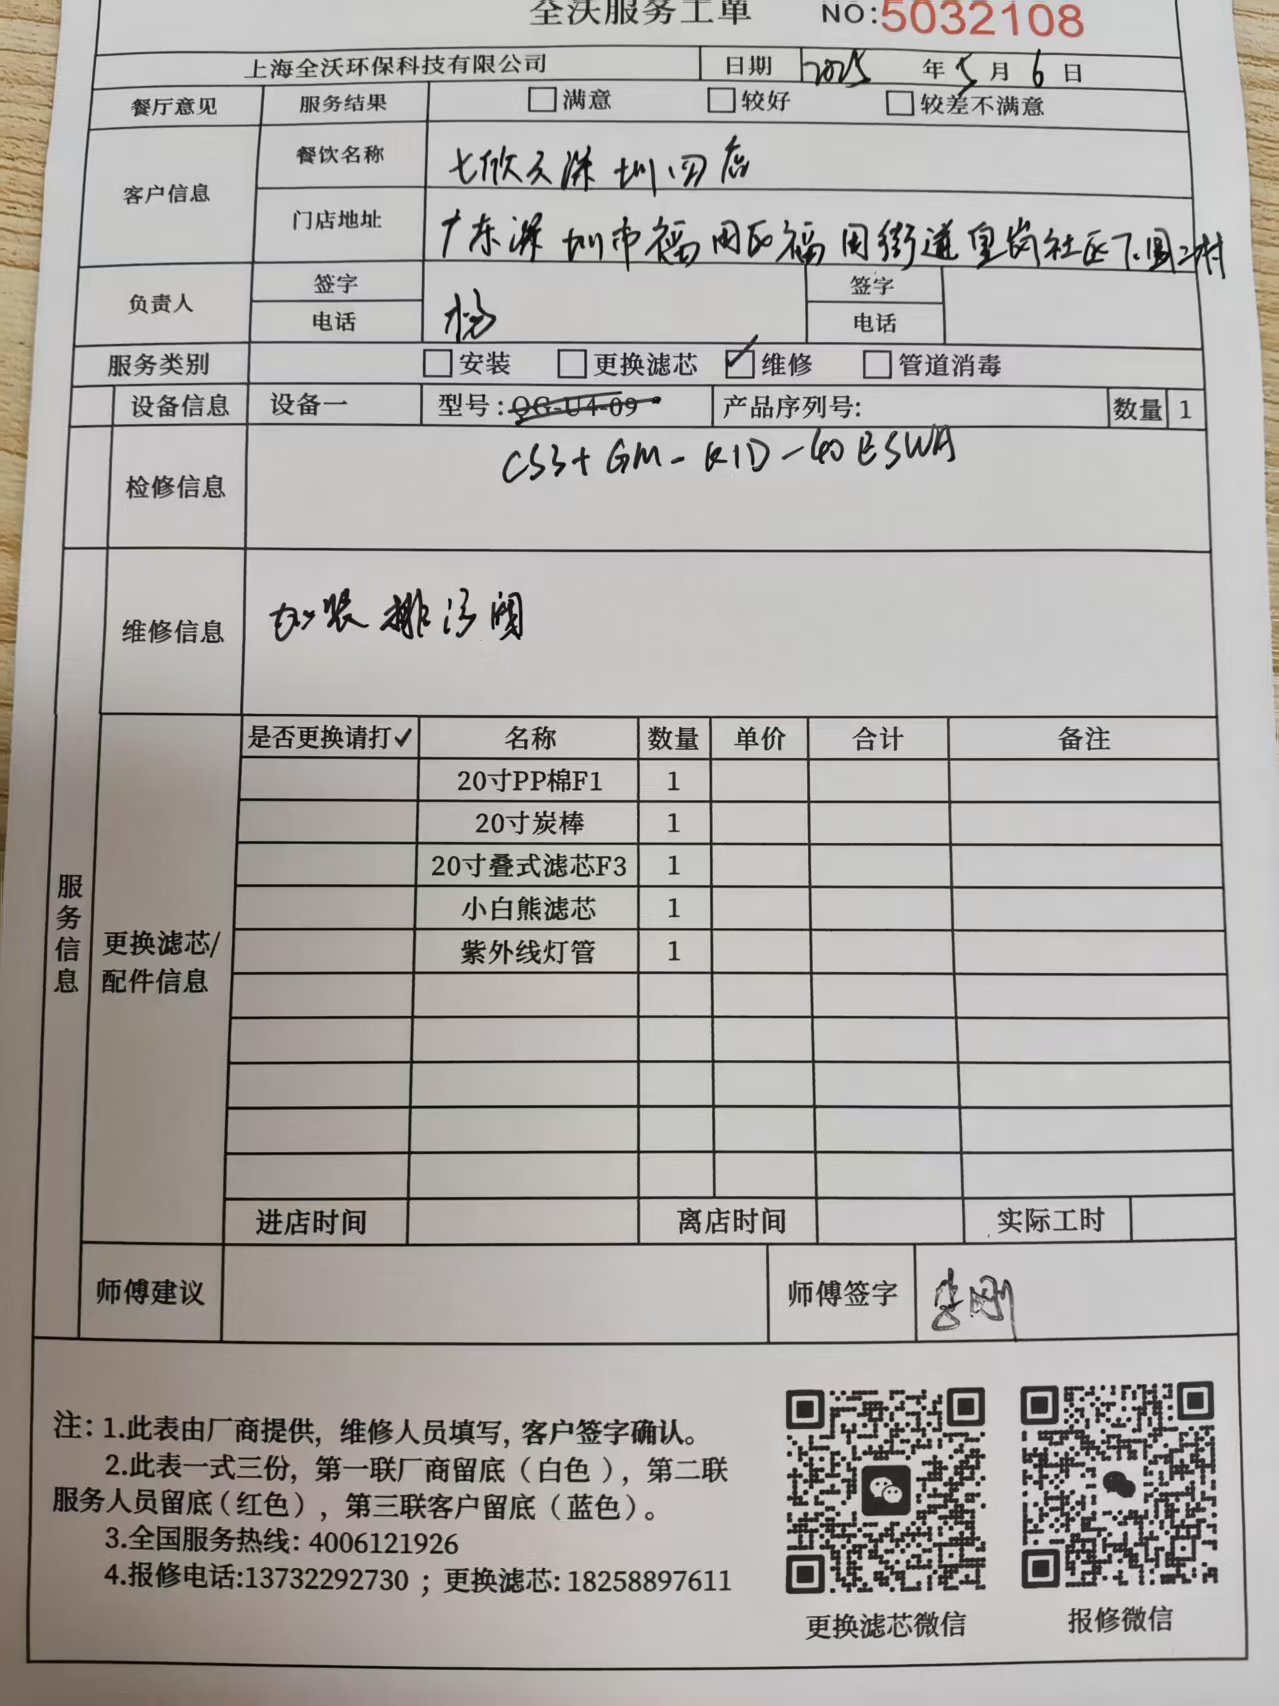 全沃服务工单 NO:5032108
上海全沃环保科技有限公司 日期 2025 年 5 月 6 日
餐厅意见 服务结果 满意 较好 较差不满意
客户信息 餐饮名称 七欣天深圳四店
门店地址 广东深圳市福田区福田街道皇岗社区下围二村
负责人 签字 签字
电话 杨 电话
服务类别 安装 更换滤芯 ✓ 维修 管道消毒
设备信息 设备一 型号:QG-U4-09 产品序列号: 数量 1
检修信息 CS3+GM-RID-40ESWA
维修信息 加装排污阀
是否更换请打✓ 名称 数量 单价 合计 备注
20寸PP棉F1 1
20寸炭棒 1
20寸叠式滤芯F3 1
小白熊滤芯 1
紫外线灯管 1
服务信息
更换滤芯/
配件信息
进店时间 离店时间 实际工时
师傅建议 师傅签字 李刚
注:1.此表由厂商提供,维修人员填写,客户签字确认。
2.此表一式三份,第一联厂商留底(白色),第二联
服务人员留底(红色),第三联客户留底(蓝色)。
3.全国服务热线:4006121926
4.报修电话:13732292730;更换滤芯:18258897611
更换滤芯微信 报修微信